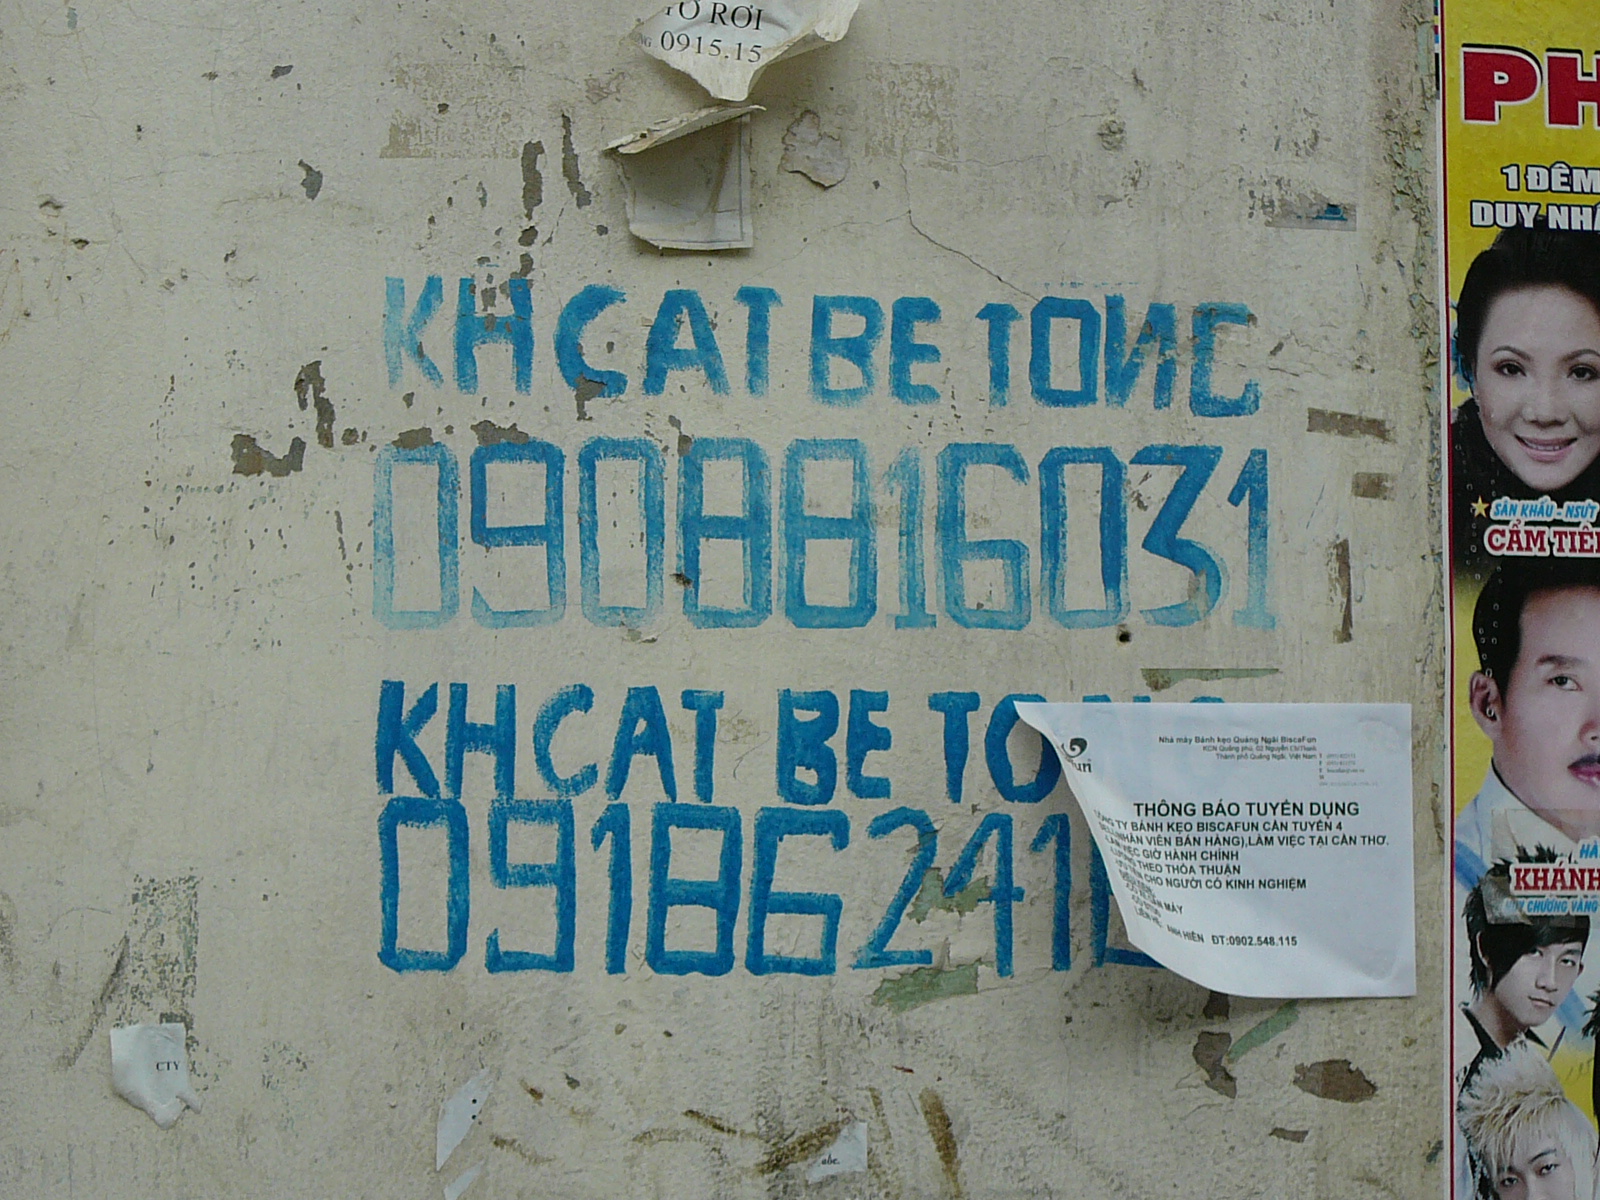 TỜ RƠI
0915.15
KHCAT BE TONG
0908816031
KHCAT BE TO
09186241
Nhà máy Bánh kẹo Quảng Ngãi BiscaFun
KCN Quảng phú, 02 Nguyễn Chí Thanh
Thành phố Quảng Ngãi, Việt Nam
THÔNG BÁO TUYỂN DỤNG
TY BÁNH KẸO BISCAFUN CẦN TUYỂN 4
NHÂN VIÊN BÁN HÀNG),LÀM VIỆC TẠI CẦN THƠ.
VIỆC GIỜ HÀNH CHÍNH
THEO THỎA THUẬN
CHO NGƯỜI CÓ KINH NGHIỆM
MÁY
ANH HIỀN ĐT:0902.548.115
CTY
abc.
PH
1 ĐÊM
DUY NHẤ
SÂN KHẤU - NSƯT
CẨM TIÊ
HÀ
KHÁNH
HUY CHƯƠNG VÀNG